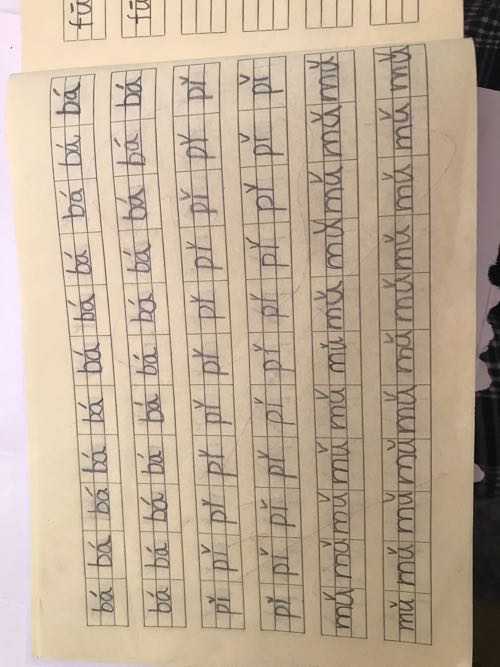 bá bá bá bá bá bá bá bá bá bá bá
bá bá bá bá bá bá bá bá bá bá bá
pǐ pǐ pǐ pǐ pǐ pǐ pǐ pǐ pǐ pǐ pǐ
pǐ pǐ pǐ pǐ pǐ pǐ pǐ pǐ pǐ pǐ pǐ
mǔ mǔ mǔ mǔ mǔ mǔ mǔ mǔ mǔ mǔ mǔ
mǔ mǔ mǔ mǔ mǔ mǔ mǔ mǔ mǔ mǔ mǔ
fū
fū